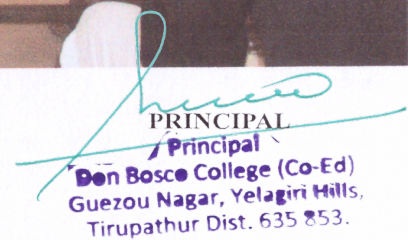 PRINCIPAL
Principal
Don Bosco College (Co-Ed)
Guezou Nagar, Yelagiri Hills,
Tirupathur Dist. 635 853.